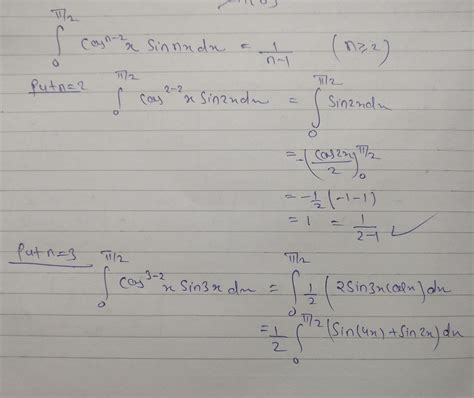 ∫₀^{π/2} cos^{n-2}x Sin nx dx = 1/(n-1) (n≥2)
Put n=2 ∫₀^{π/2} cos^{2-2}x Sin2x dx = ∫₀^{π/2} Sin2x dx
= -(cos2x/2)₀^{π/2}
= -1/2 (-1-1)
= 1 = 1/(2-1) ✓
Put n=3
∫₀^{π/2} cos^{3-2}x Sin3x dx = ∫₀^{π/2} 1/2 (2Sin3x cosx) dx
= 1/2 ∫₀^{π/2} (Sin(4x) + Sin2x) dx